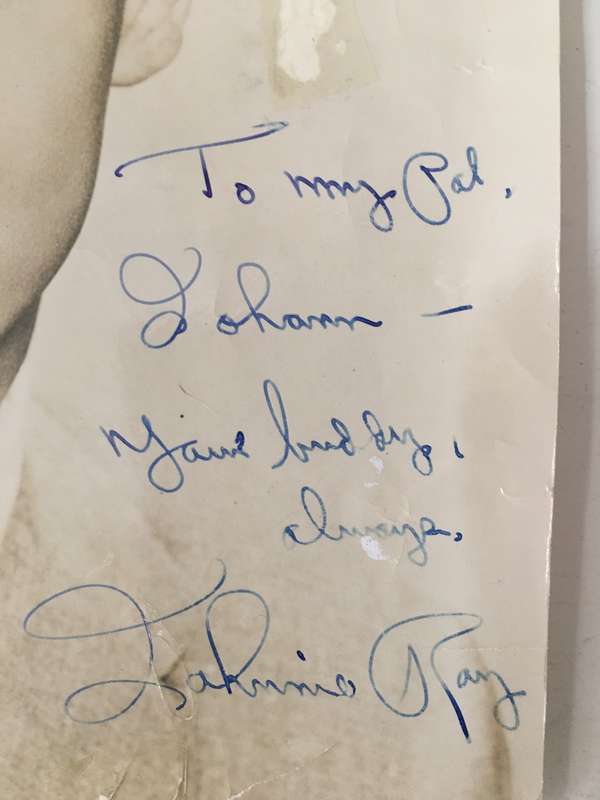 To my Pal,
Johann —
Your buddy,
always,
Johnnie Ray